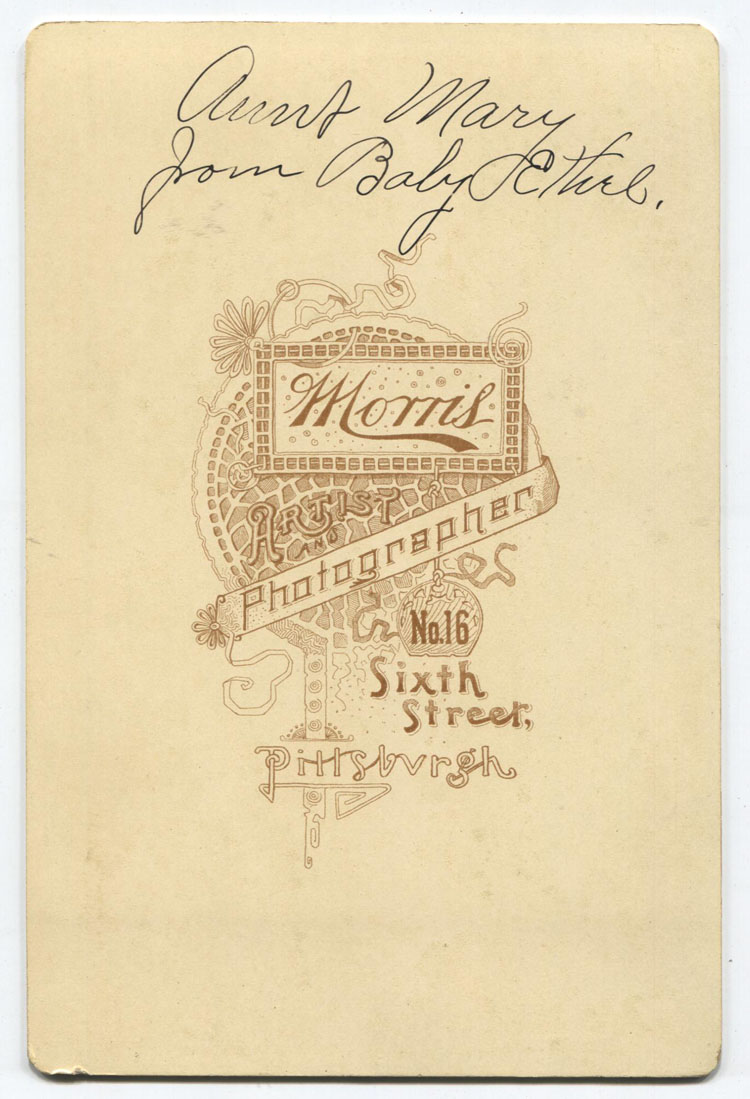 Aunt Mary
from Baby Ethel.
Morris
Artist
and
Photographer
No.16
Sixth
Street,
Pittsburgh